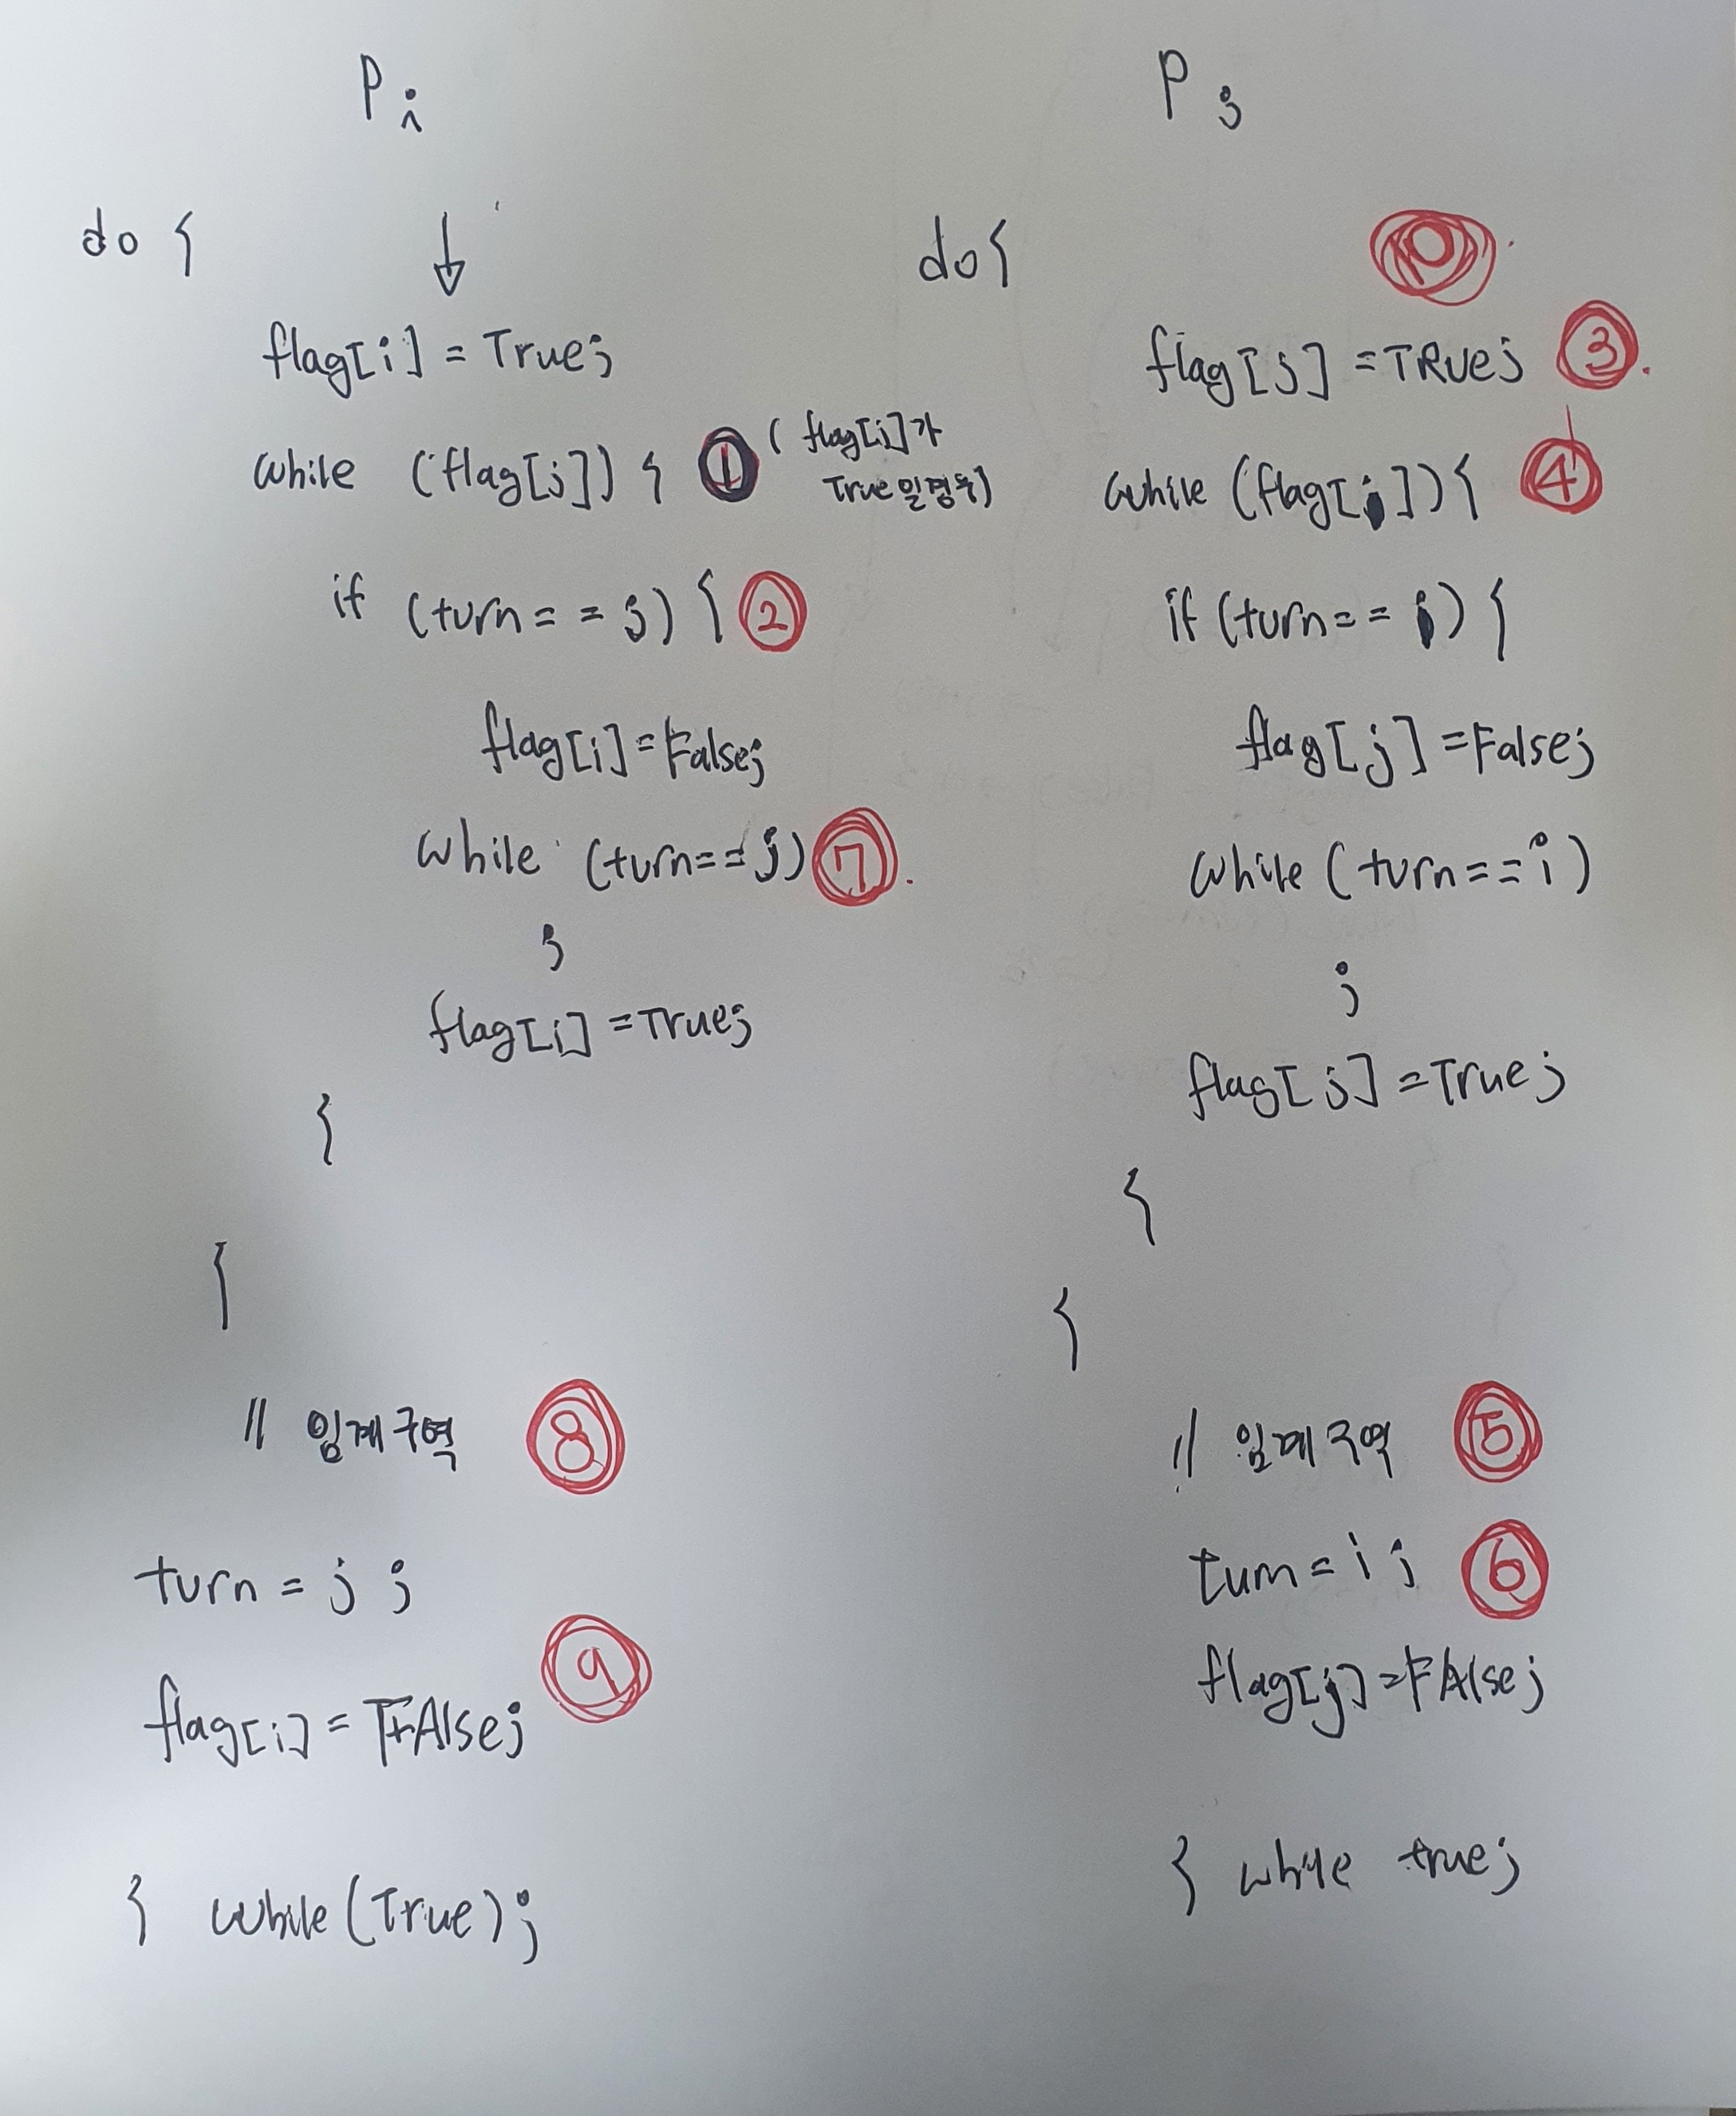 Pi
do {
↓
flag[i] = True;
while (flag[j]) { ① (flag[j]가
True일경우)
if (turn == j) { ②
flag[i] = False;
while (turn == j) ⑦
;
flag[i] = True;
}
}
// 임계구역 ⑧
turn = j ;
flag[i] = FAlse; ⑨
} while (True);
Pj
do {
⑩
flag[j] = TRUe; ③
while (flag[i]) { ④
if (turn == i) {
flag[j] = False;
while (turn == i)
;
flag[j] = True;
}
}
// 임계구역 ⑤
turn = i ; ⑥
flag[j] = FAlse;
} while true;